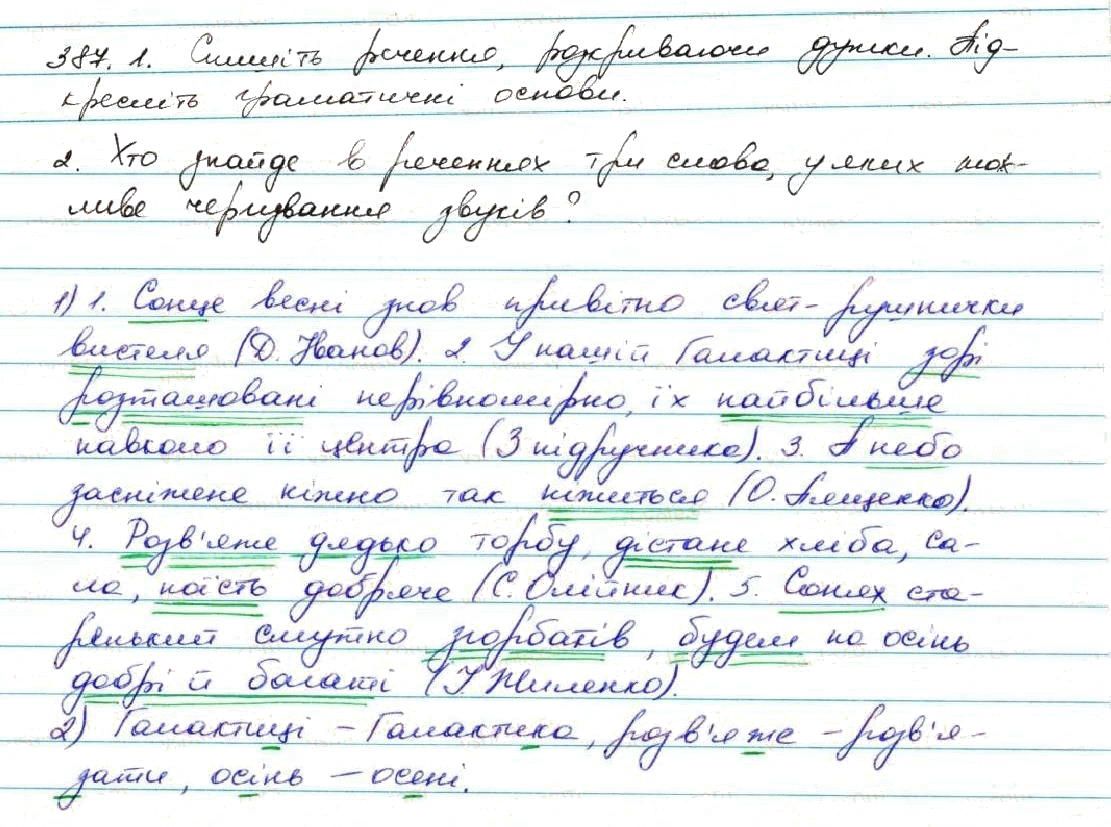 387. 1. Спишіть речення, розкриваючи дужки. Під-
кресліть граматичні основи.
2. Хто знайде в реченнях три слова, у яких мож-
ливе чергування звуків?
1) 1. Сонце весні знов привітно свят-рушнички
вистеля (Д. Іванов). 2. У нашій Галактиці зорі
розташовані нерівномірно, їх найбільше
навколо її центра (З підручника). 3. А небо
засніжене ніжно так ніжиться (О. Лященко).
4. Розв'яже дядько торбу, дістане хліба, са-
ла, поїсть добряче (С. Олійник). 5. Сонях ста-
ренький смутно згорбатів, будем на осінь
добрі й багаті (І. Жиленко).
2) Галактиці – Галактика, розв'яже – розв'я-
зати, осінь – осені.